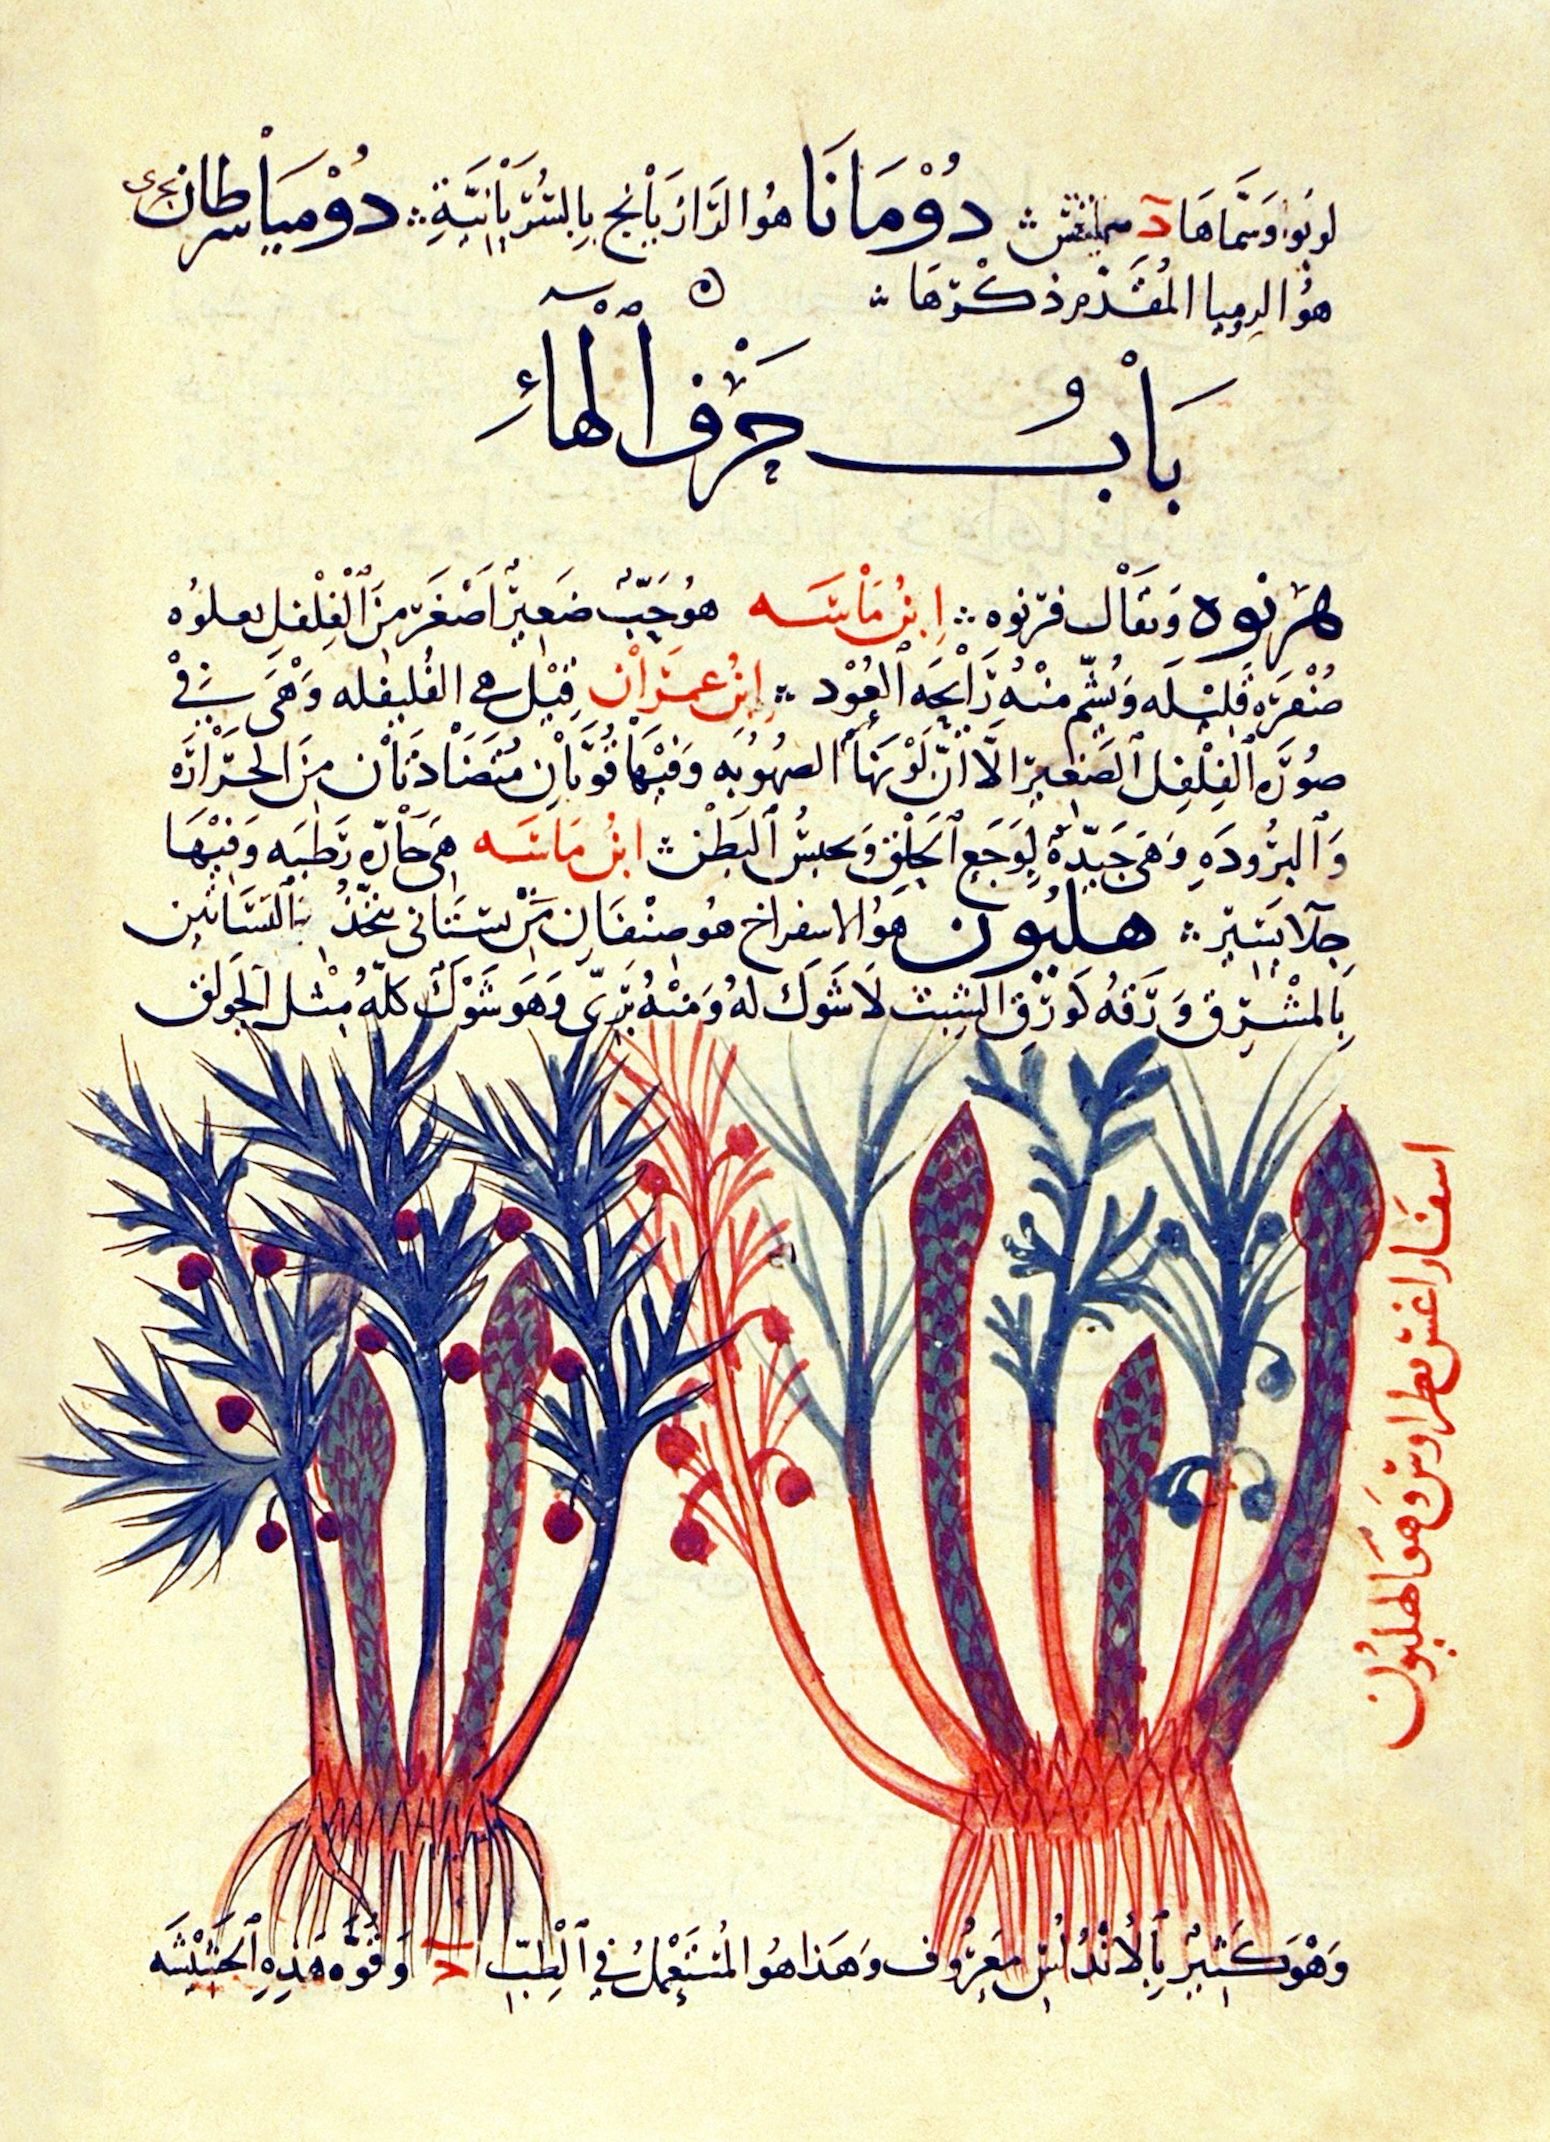 لوبوا وسماها د سملنفس ⁘ دُوْمَانَا هُوَ الرَازيَانج بِالسُّرْيَانِيَّةِ ⁘ دُوْميَا سرطان بحرى
هُوَ الروميا المُقَدَّم ذكْرهَا ⁘
بَابُ حَرْفِ الْهَاءِ
هرنوه وَيقَال قرنوه ⁘ ابنُ مَاسَه هو حَبّ صَغير اصْغَر مِنَ الفِلْفل يعلوه
صُفرَه قَليْله وَيُشَمّ منْهُ رَايحَه العُوْد ⁘ ابن عمرَان قيْل هي الفُليفله وَهْيَ في
صُوْرَه الفِلْفِل الصَغير الا انّ لَوْنهَا الصهُوبه وَفيْهَا قُوَّتَان مُتَضَادتَان مِنَ الحَرَارَه
وَالبرُودَه وَهيَ جَيّدَة لِوَجَع الحَلْق وَيحبسُ البَطْن ⁘ ابن مَاسَه هيَ حَارّه رَطبَه وَفيْهَا
جلا يَسير ⁘ هليُون هوَ الاسفراخ هُو صنْفَان منْ بستَاني يتّخَذُ في البَسَاتين
بالمشْرق وَرَقهُ كوَرَق الشبث لَا شَوك لهُ وَمنْهُ بَرّي وَهوَ شَوْك كلّهُ مثل الجَولق
اسفَاراغس بطراوس وَهوَ الهليُون
وَهْوَ كَثيرٌ بِالاُنْدُلُس مَعرُوف وَهَذا هُوَ المُسْتَعْمَلُ فِي الْطِبّ وَقُوَّه هَذِهِ الحَشيْشَه